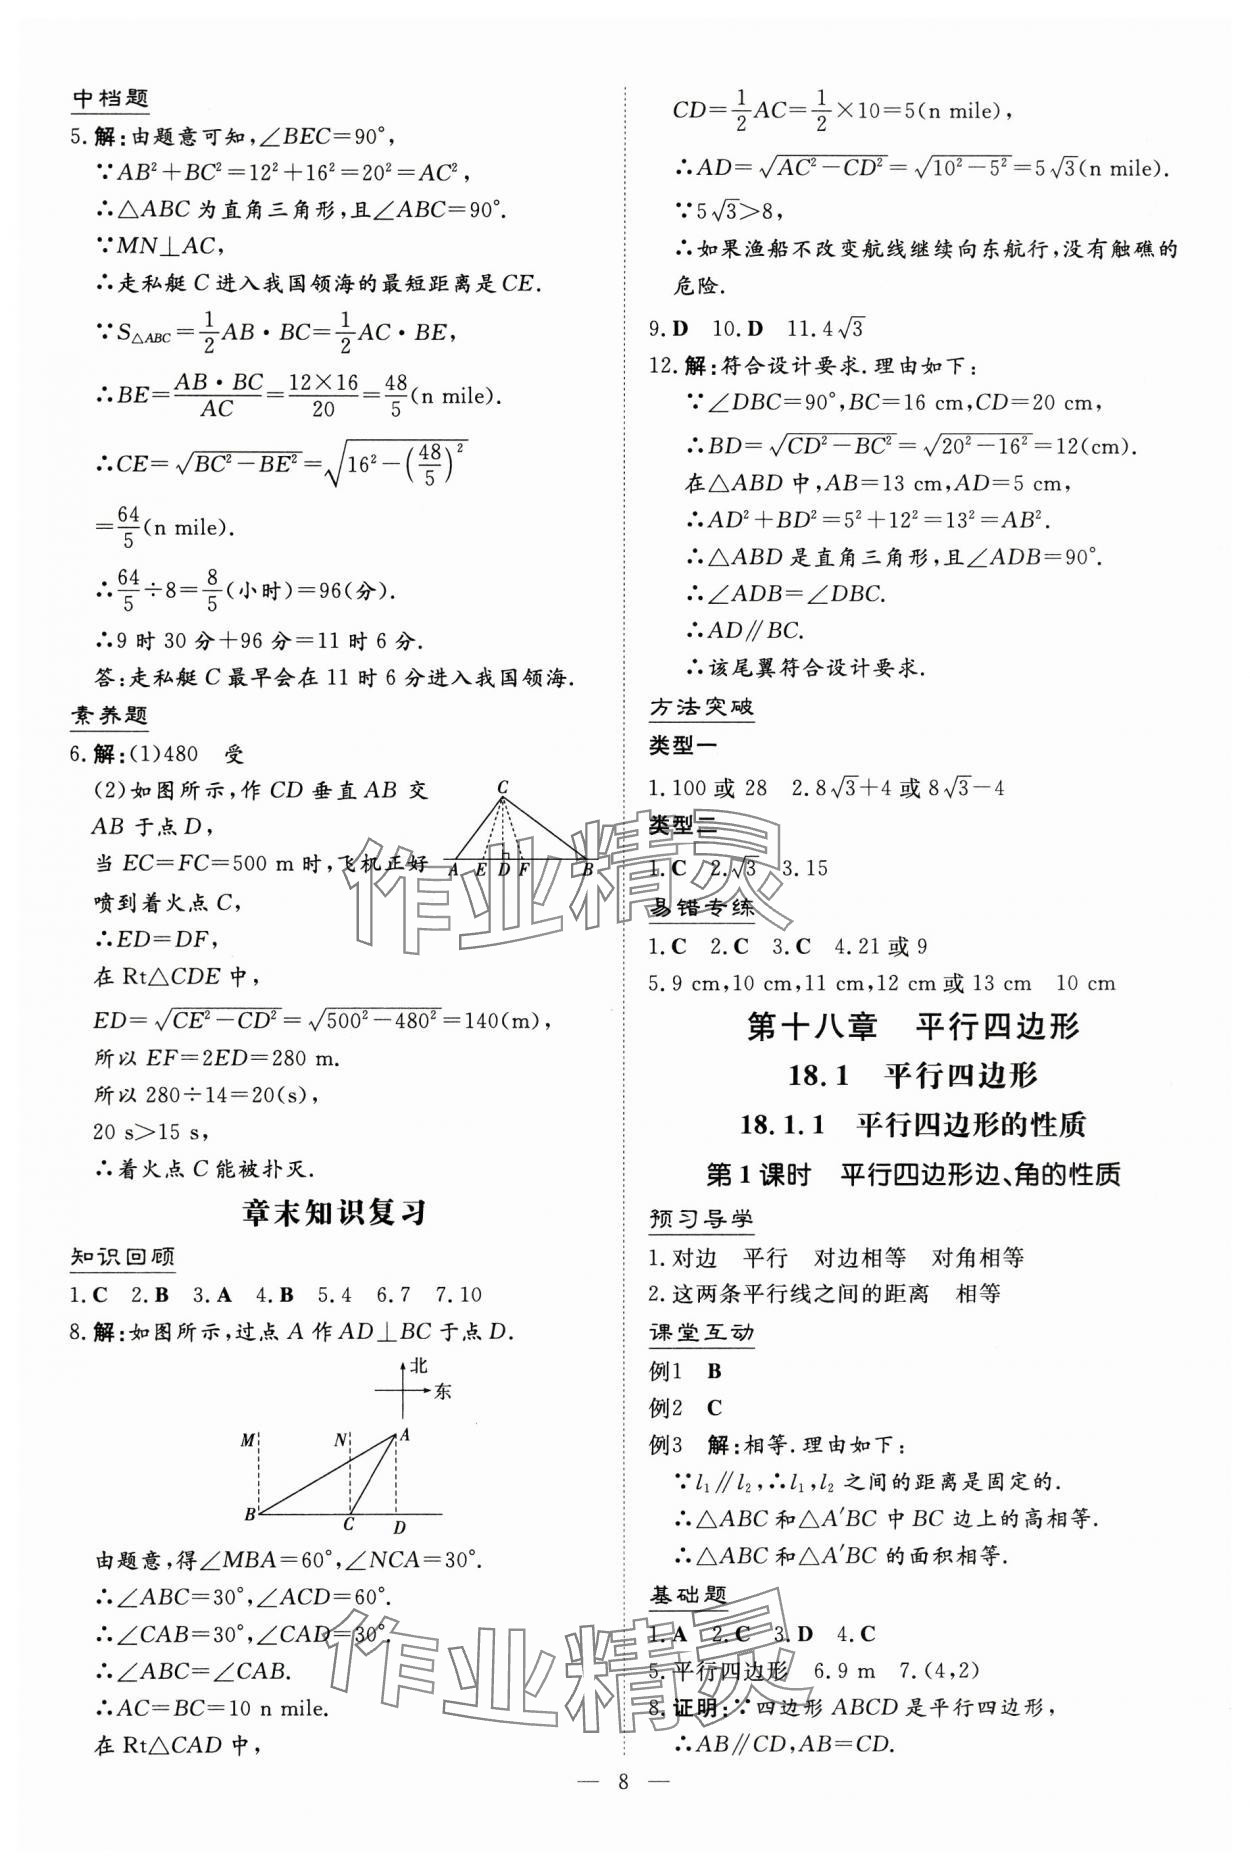 中档题
5.解:由题意可知,∠BEC=90°,
∵AB²+BC²=12²+16²=20²=AC²,
∴△ABC 为直角三角形,且∠ABC=90°.
∵MN⊥AC,
∴走私艇 C 进入我国领海的最短距离是CE.
∵S△ABC=1/2 AB·BC=1/2 AC·BE,
∴BE=AB·BC/AC=12×16/20=48/5(n mile).
∴CE=√(BC²−BE²)=√(16²−(48/5)²)
=64/5(n mile).
∴64/5÷8=8/5(小时)=96(分).
∴9 时 30 分+96 分=11 时 6 分.
答:走私艇 C 最早会在 11 时 6 分进入我国领海.
素养题
6.解:(1)480 受
(2)如图所示,作 CD 垂直AB 交
AB 于点D,
当 EC=FC=500 m时,飞机正好
喷到着火点C,
∴ED=DF,
在 Rt△CDE 中,
ED=√(CE²−CD²)=√(500²−480²)=140(m),
所以 EF=2ED=280 m.
所以 280÷14=20(s),
20 s>15 s,
∴着火点 C 能被扑灭.
C
A E D F B
章末知识复习
知识回顾
1.C 2.B 3.A 4.B 5.4 6.7 7.10
8.解:如图所示,过点 A 作AD⊥BC 于点 D.
北
东
M N A
B C D
由题意,得∠MBA=60°,∠NCA=30°.
∴∠ABC=30°,∠ACD=60°.
∴∠CAB=30°,∠CAD=30°.
∴∠ABC=∠CAB.
∴AC=BC=10 n mile.
在 Rt△CAD 中,
CD=1/2 AC=1/2×10=5(n mile),
∴AD=√(AC²−CD²)=√(10²−5²)=5√3(n mile).
∵5√3>8,
∴如果渔船不改变航线继续向东航行,没有触礁的
危险.
9.D 10.D 11.4√3
12.解:符合设计要求.理由如下:
∵∠DBC=90°,BC=16 cm,CD=20 cm,
∴BD=√(CD²−BC²)=√(20²−16²)=12(cm).
在△ABD 中,AB=13 cm,AD=5 cm,
∴AD²+BD²=5²+12²=13²=AB².
∴△ABD 是直角三角形,且∠ADB=90°.
∴∠ADB=∠DBC.
∴AD∥BC.
∴该尾翼符合设计要求.
方法突破
类型一
1.100 或 28 2.8√3+4 或 8√3−4
类型二
1.C 2.√3 3.15
易错专练
1.C 2.C 3.C 4.21 或 9
5.9 cm,10 cm,11 cm,12 cm 或 13 cm 10 cm
第十八章 平行四边形
18.1 平行四边形
18.1.1 平行四边形的性质
第1课时 平行四边形边、角的性质
预习导学
1.对边 平行 对边相等 对角相等
2.这两条平行线之间的距离 相等
课堂互动
例1 B
例2 C
例3 解:相等.理由如下:
∵l₁∥l₂,∴l₁,l₂ 之间的距离是固定的.
∴△ABC 和△A′BC 中 BC 边上的高相等.
∴△ABC 和△A′BC 的面积相等.
基础题
1.A 2.C 3.D 4.C
5.平行四边形 6.9 m 7.(4,2)
8.证明:∵四边形 ABCD 是平行四边形,
∴AB∥CD,AB=CD.
— 8 —
作业精灵
作业精灵